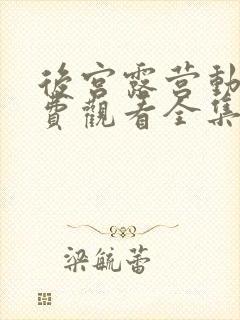 後宮露营動
費觀看全集
梁毓蕾